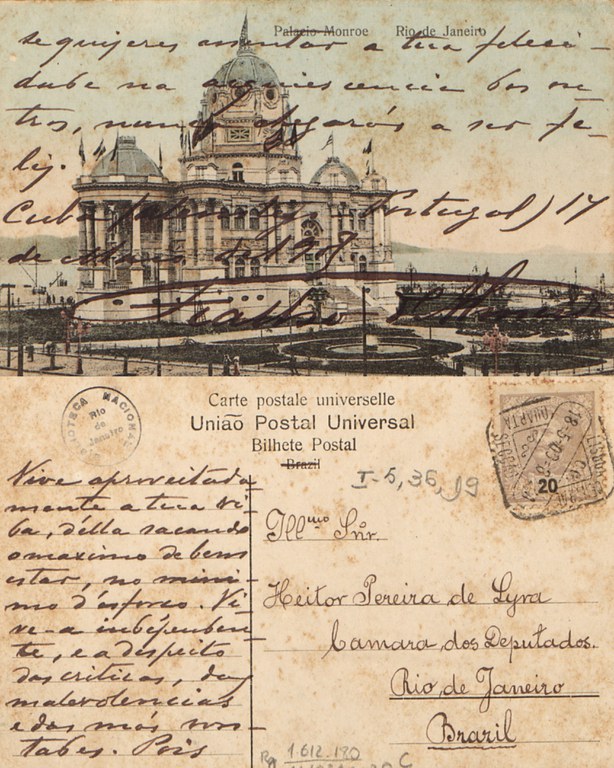 Palacio Monroe Rio de Janeiro
se quijeres a tua felici-
dade na acquiescencia dos ou-
tros, nunca chegarás a ser fe-
liz."
Cuba Portugal) 17
de de 1908
Carte postale universelle
União Postal Universal
Bilhete Postal
Brazil
BIBLIOTECA NACIONAL
Rio
de
Janeiro
QUARTA
SECÇÃO
18-5-0
20
I-5,36,19
Vive aproveitada
mente a tua vi
da, d'élla sacando
o maximo de bem
estar, no mini-
mo d'esforço. Vi-
ve-a indépenden
te, e a despeito
das criticas, das
malevolencias
e das más von-
tades. Pois
Illmo Snr.
Heitor Pereira de Lyra
Camara dos Deputados.
Rio de Janeiro
Brazil
1.612.190